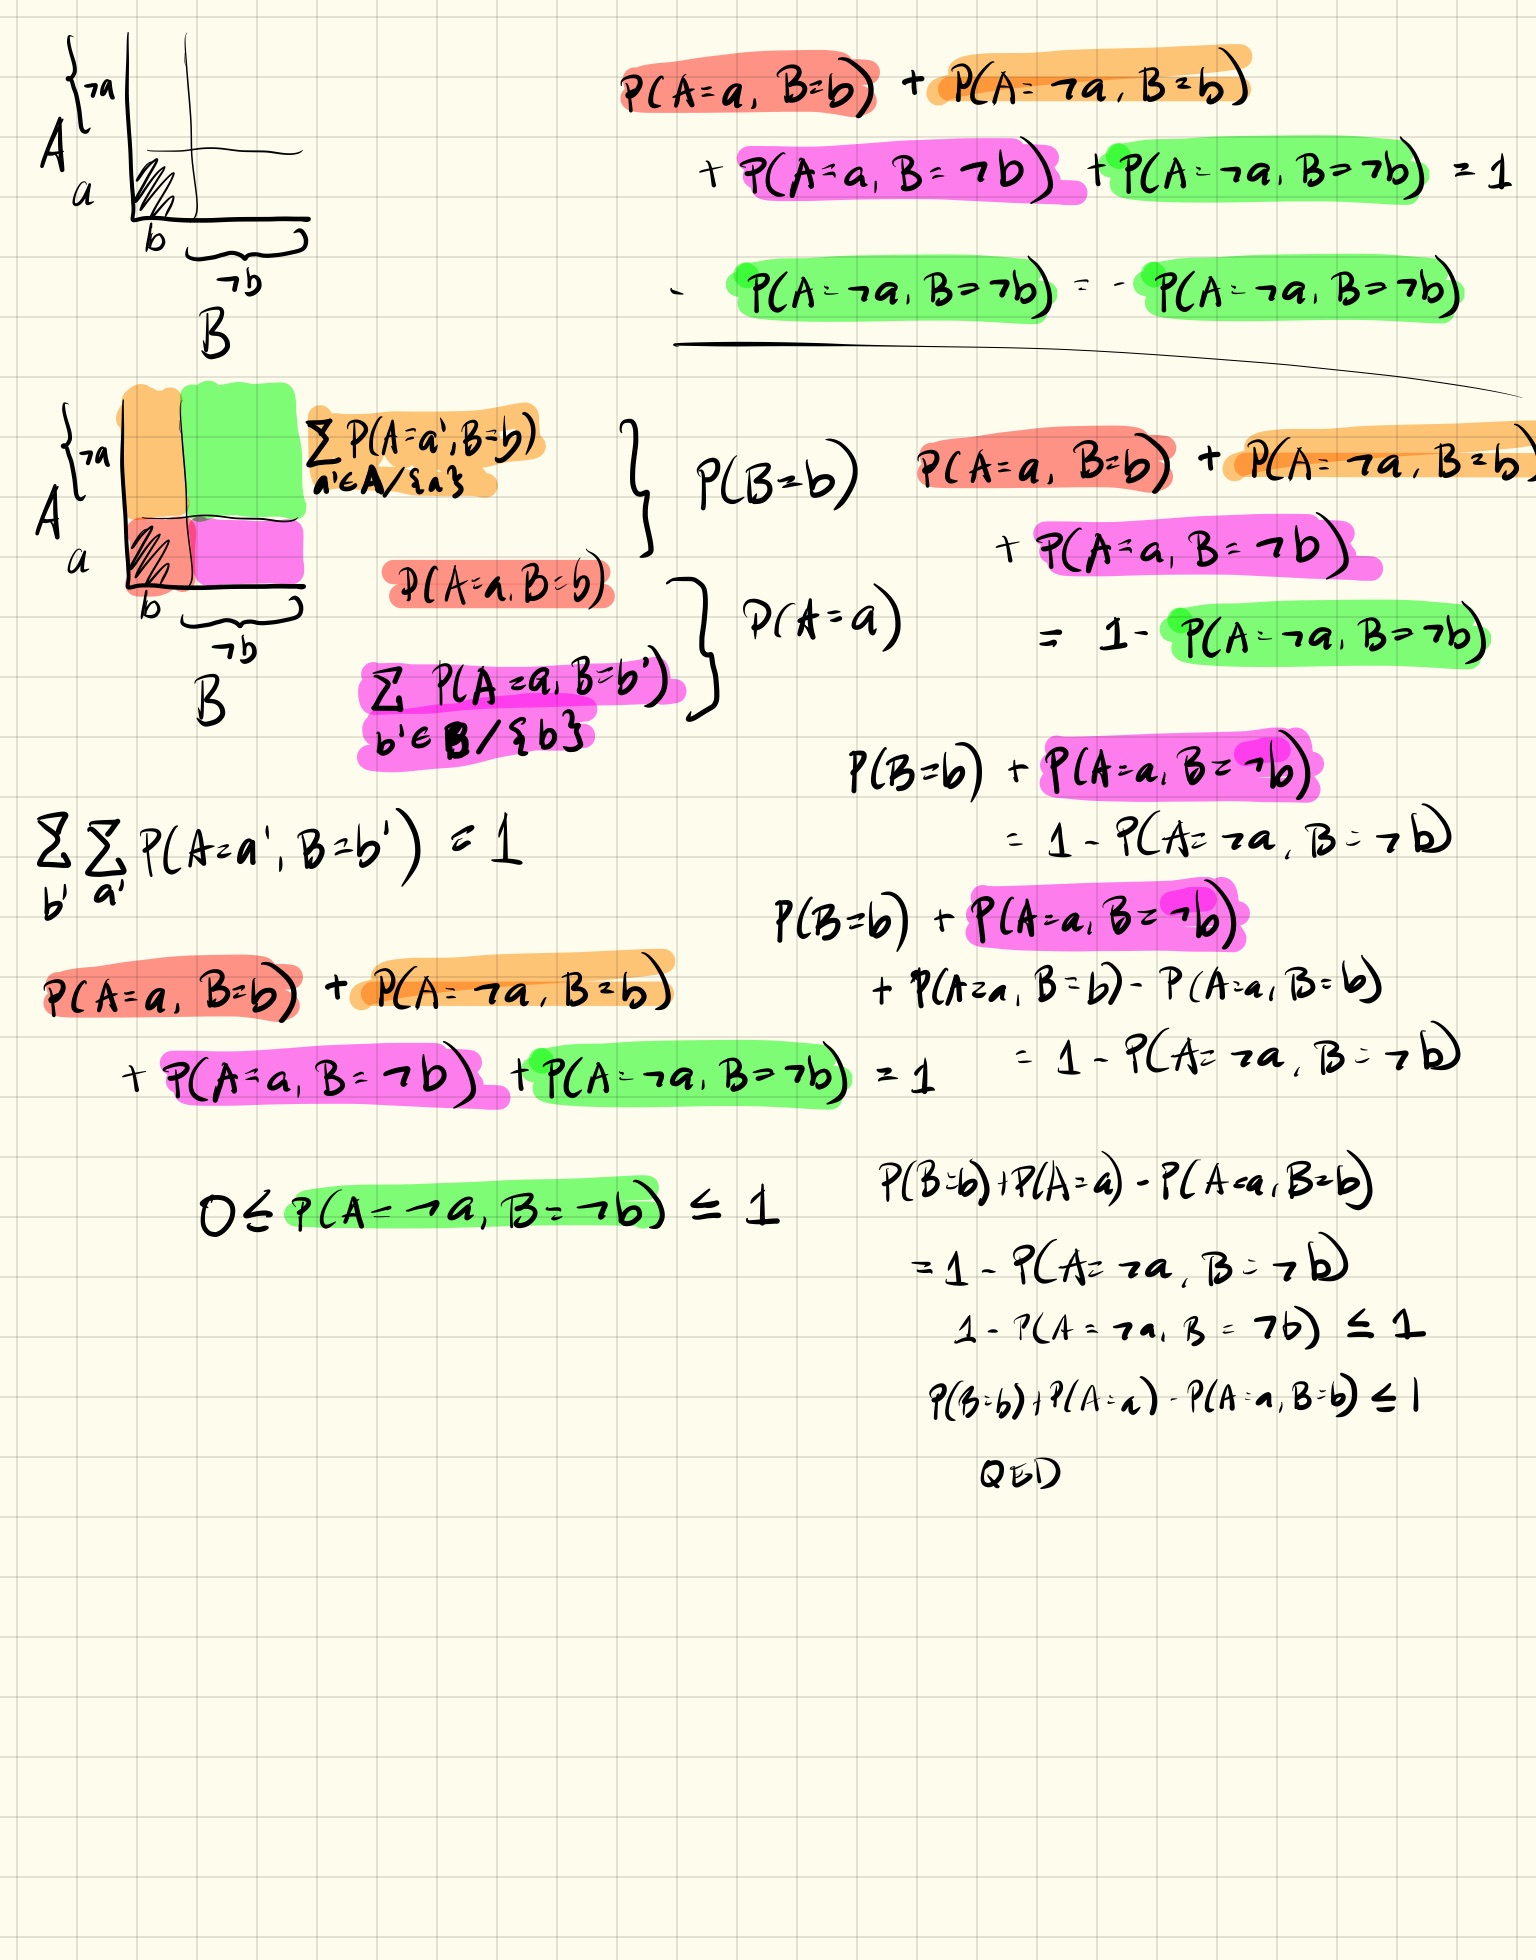 ¬a
A
a
b
¬b
B
¬a
A
a
b
¬b
B
∑ P(A=a', B=b)
a'∈A/{a}
P(B=b)
P(A=a, B=b)
P(A=a)
∑ P(A=a, B=b')
b'∈B/{b}
∑ ∑ P(A=a', B=b') = 1
b' a'
P(A=a, B=b) + P(A=¬a, B=b)
+ P(A=a, B=¬b) + P(A=¬a, B=¬b) = 1
0 ≤ P(A=¬a, B=¬b) ≤ 1
P(A=a, B=b) + P(A=¬a, B=b)
+ P(A=a, B=¬b) + P(A=¬a, B=¬b) = 1
- P(A=¬a, B=¬b) = - P(A=¬a, B=¬b)
P(A=a, B=b) + P(A=¬a, B=b)
+ P(A=a, B=¬b)
= 1 - P(A=¬a, B=¬b)
P(B=b) + P(A=a, B=¬b)
= 1 - P(A=¬a, B=¬b)
P(B=b) + P(A=a, B=¬b)
+ P(A=a, B=b) - P(A=a, B=b)
= 1 - P(A=¬a, B=¬b)
P(B=b) + P(A=a) - P(A=a, B=b)
= 1 - P(A=¬a, B=¬b)
1 - P(A=¬a, B=¬b) ≤ 1
P(B=b) + P(A=a) - P(A=a, B=b) ≤ 1
QED